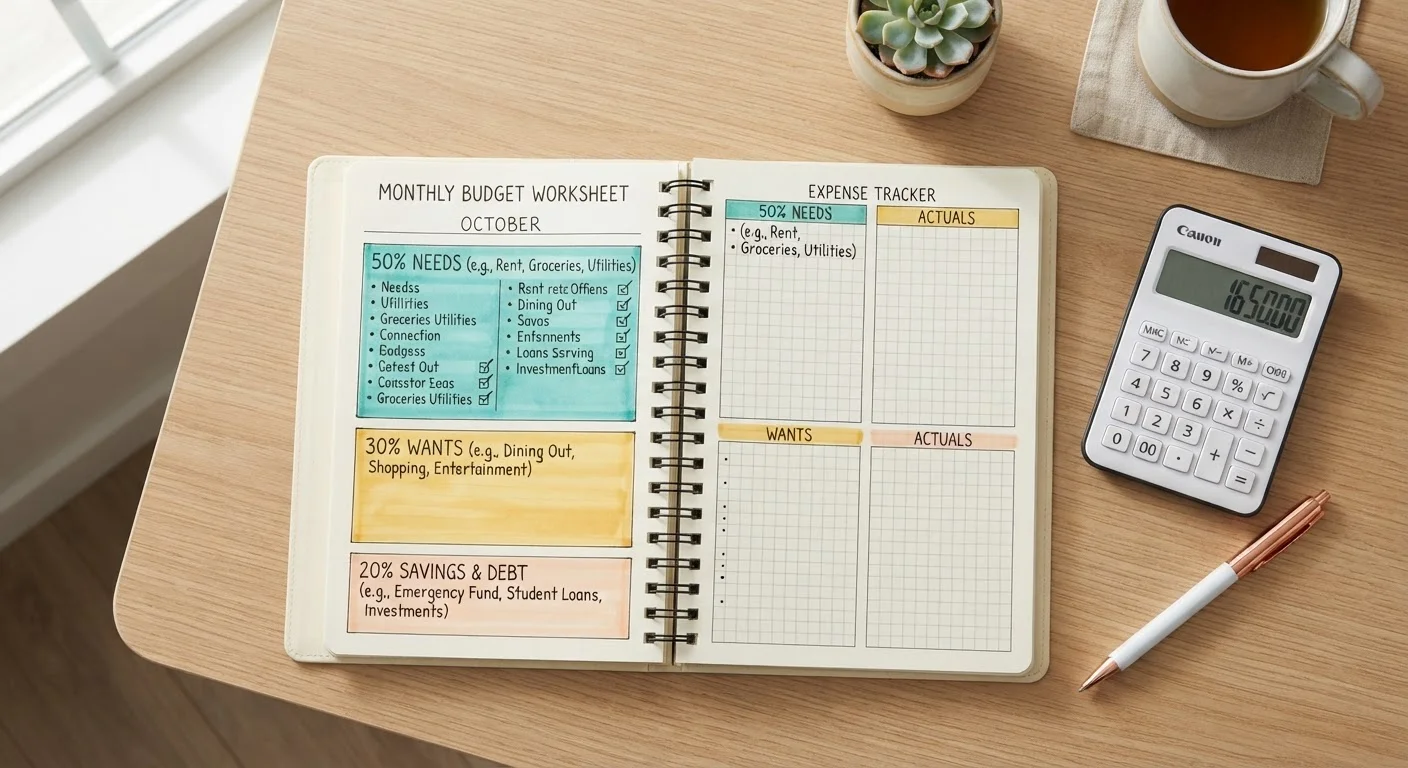 MONTHLY BUDGET WORKSHEET
OCTOBER
50% NEEDS (e.g., Rent, Groceries, Utilities)
• Needss
• Utilities
• Greceries Utilities
• Connection
• Eodgess
• Getest Out
• Comstor Eeas
• Groceries Utilities
• Rsnt retc Offens
• Dining Out
• Savas
• Enfsrnments
• Loans Ssrving
• InvestmentLoans
30% WANTS (e.g., Dining Out,
Shopping, Entertainment)
20% SAVINGS & DEBT
(e.g., Emergency Fund, Student Loans,
Investments)
EXPENSE TRACKER
50% NEEDS
• (e.g., Rent,
• Groceries, Utilities)
ACTUALS
WANTS
ACTUALS
Canon
7 8 9 % √
4 5 6 × ÷
1 2 3 + −
0 00 . =